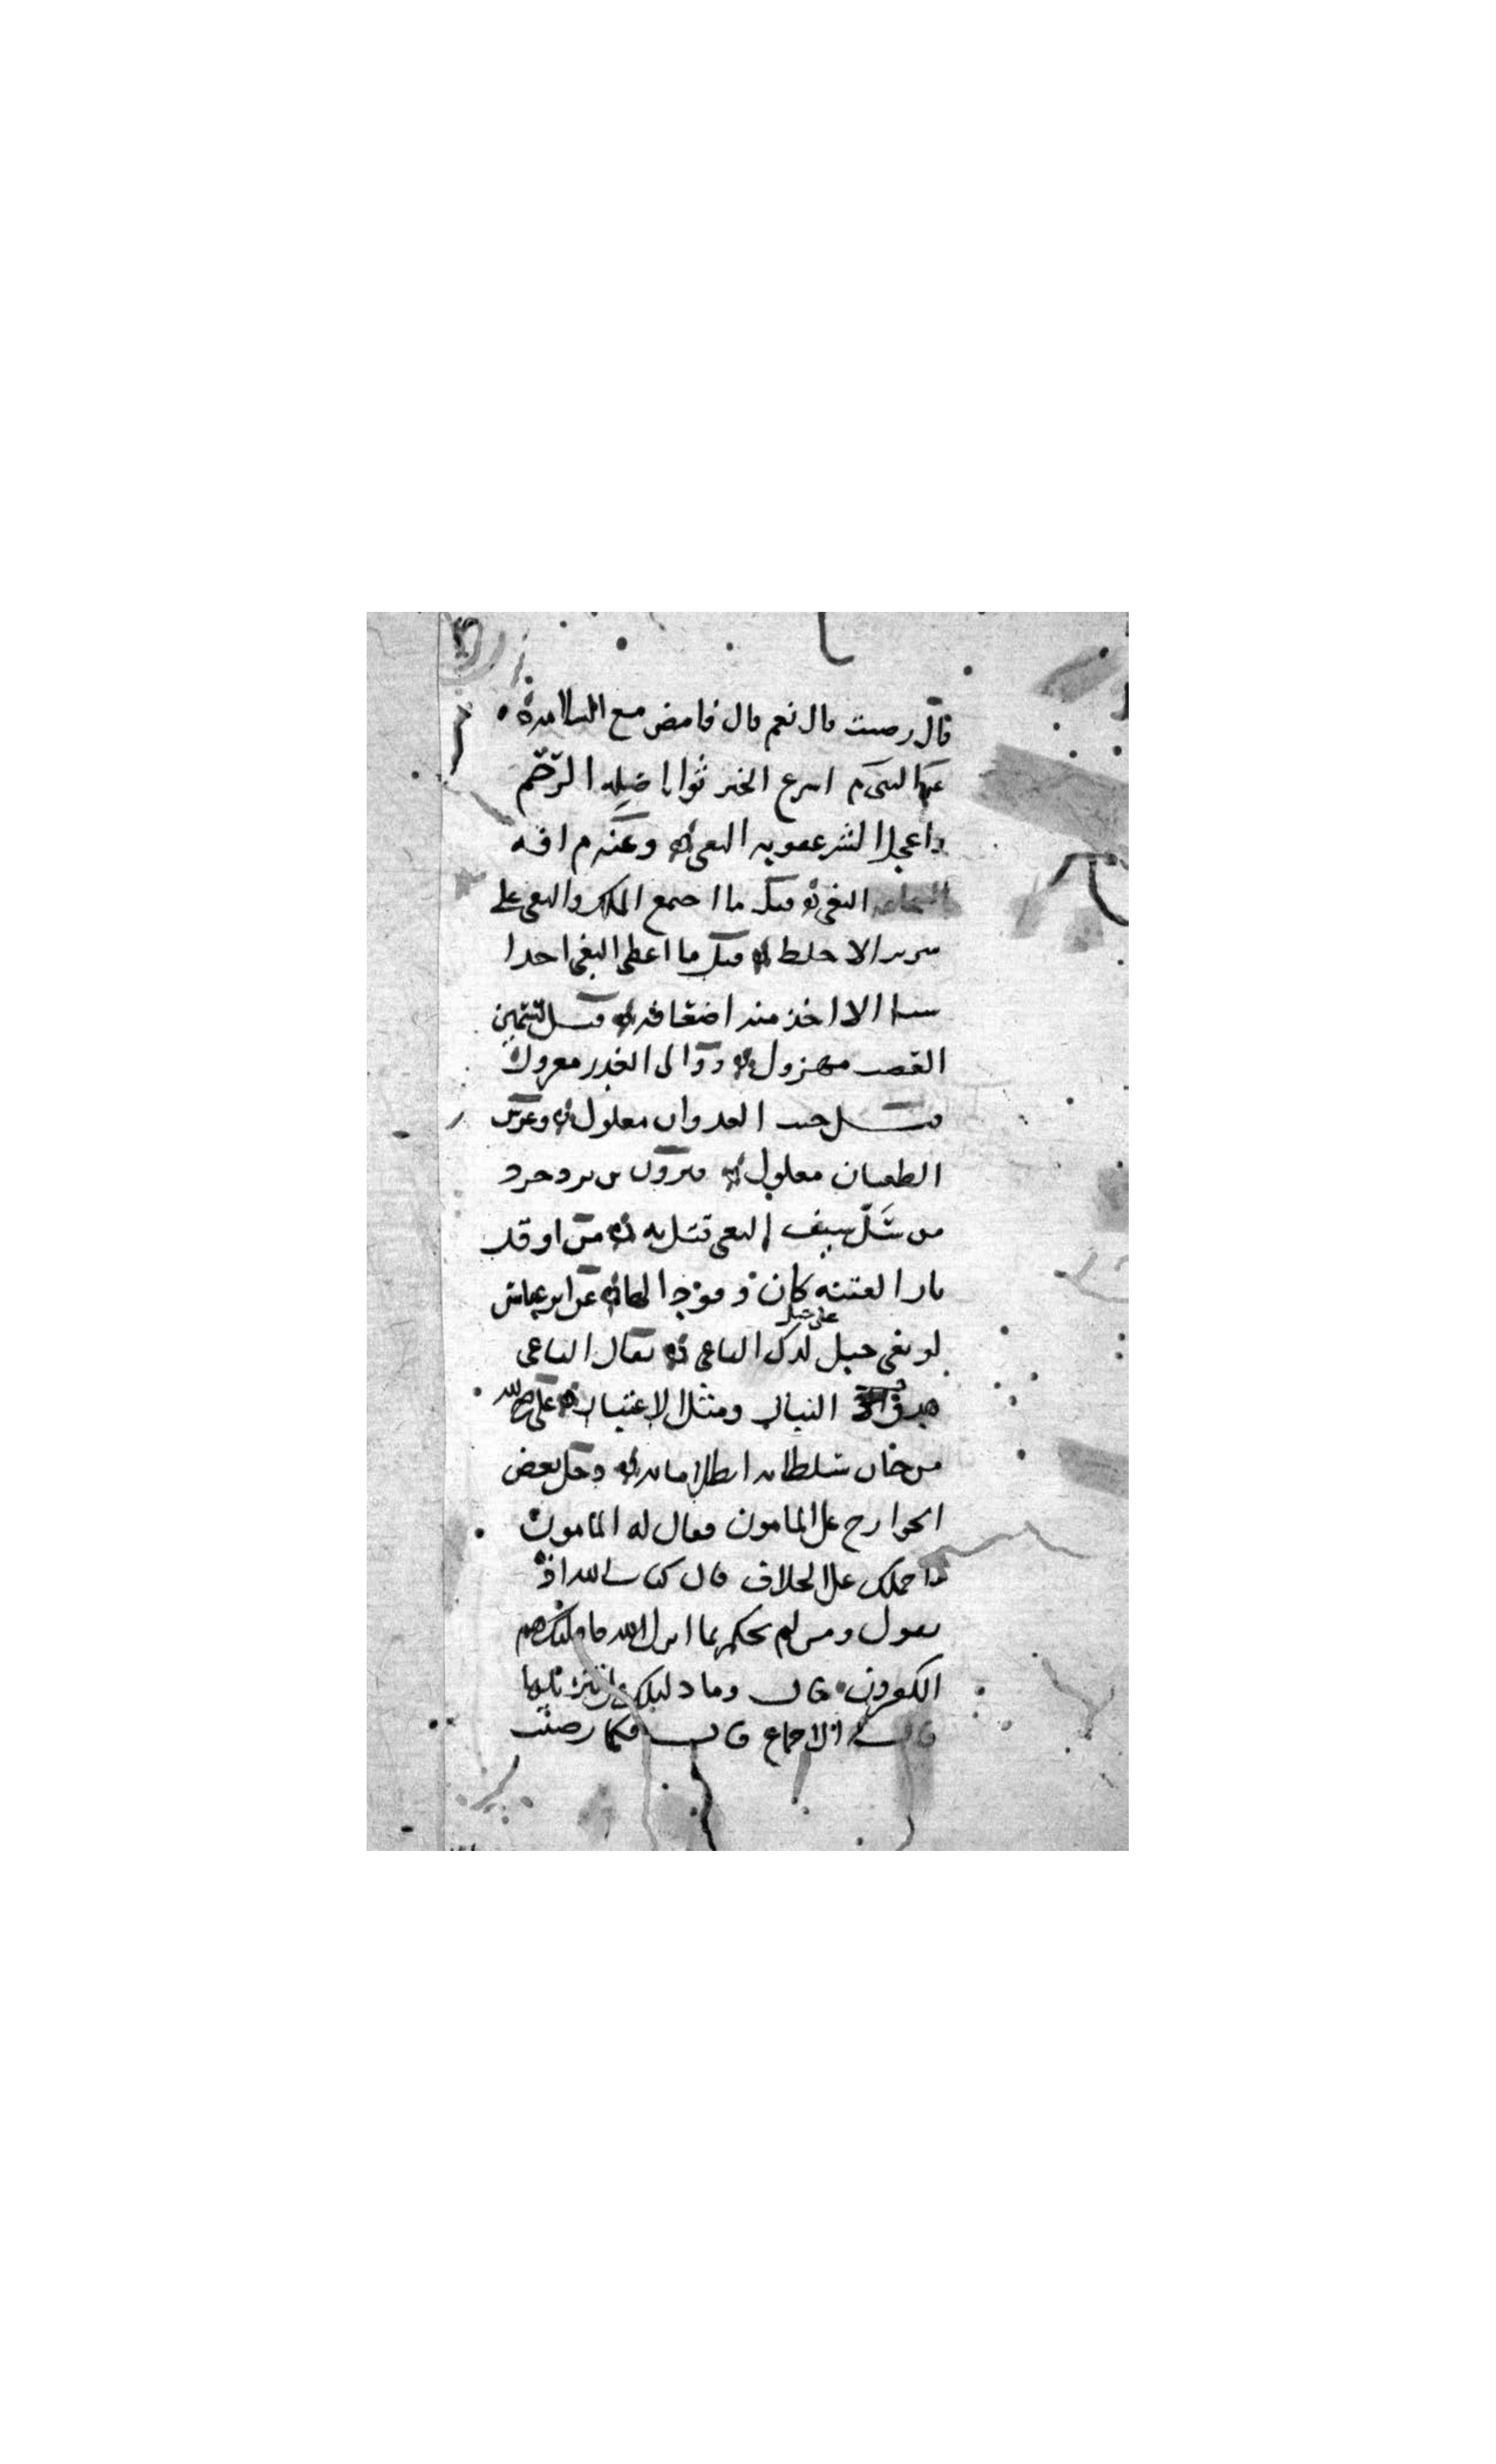 قال رضيت قال نعم قال فامض مع
عن النبي م اسرع الخير ثوابا صلة الرحم
واعجل الشر عقوبة البغي وعنه م افة
الشجاعة البغي قيل ما اجتمع الملك والبغي على
سرير الا خلط قيل ما اعطى البغي احدا
شيئا الا اخذ منه اضعافه قيل
مهزول ووالى الغدر معزول
قيل جيب العدوان مغلول وعرش
الطغيان فيروز بن يزدجرد
من سل سيف البغي قتل به من اوقد
نار الفتنة كان وقودا لها عن ابن عباس
لو بغى جبل على جبل لدك الباغي يقال الباغي
النبال ومثل الاغتيال علي رضي الله
من خان سلطانه بطل امانه ودخل بعض
الخوارج على المامون فقال له المامون
ما حملك على الخلاف قال كتاب الله اذ
يقول ومن لم يحكم بما انزل الله فاولئك هم
الكفرون قال وما دليلك
قال الاجماع قال فكما رضيت